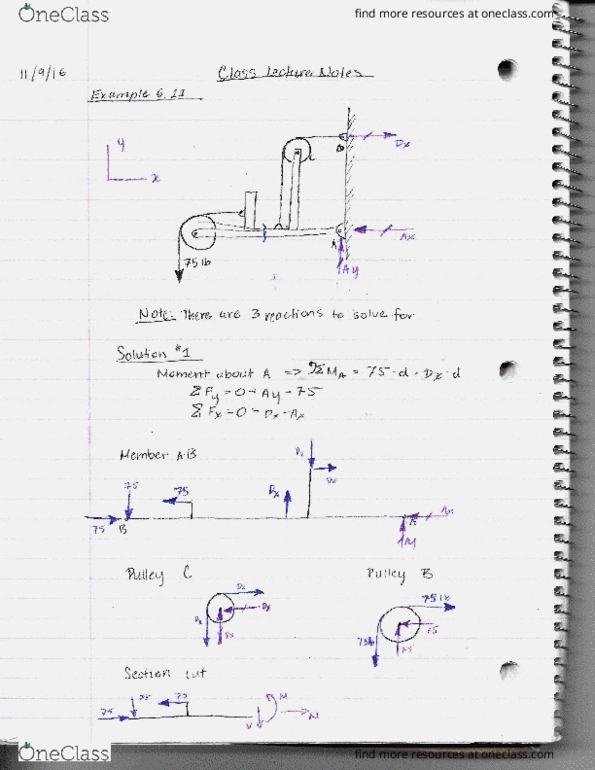 OneClass
find more resources at oneclass.com
11/9/16
Class Lecture Notes
Example 6.11
y
x
D
Dx
C
A
Ax
Ay
75 lb
Note: There are 3 reactions to solve for
Solution #1
Moment about A => ΣMA = 75·d - Dx·d
ΣFy = 0 = Ay - 75
ΣFx = 0 = Dx - Ax
Member AB
Dx
Dx
75
75
Dx
75
B
A
Ax
Ay
Pulley C
Pulley B
Dx
Dx
Dx
Dx
75 lb
75
75lb
75
Section cut
75
75
75
M
V
N
OneClass
find more resources at oneclass.com